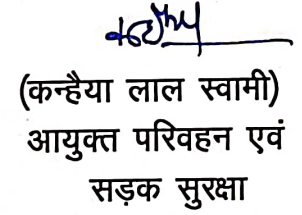 (कन्हैया लाल स्वामी)
आयुक्त परिवहन एवं
सड़क सुरक्षा